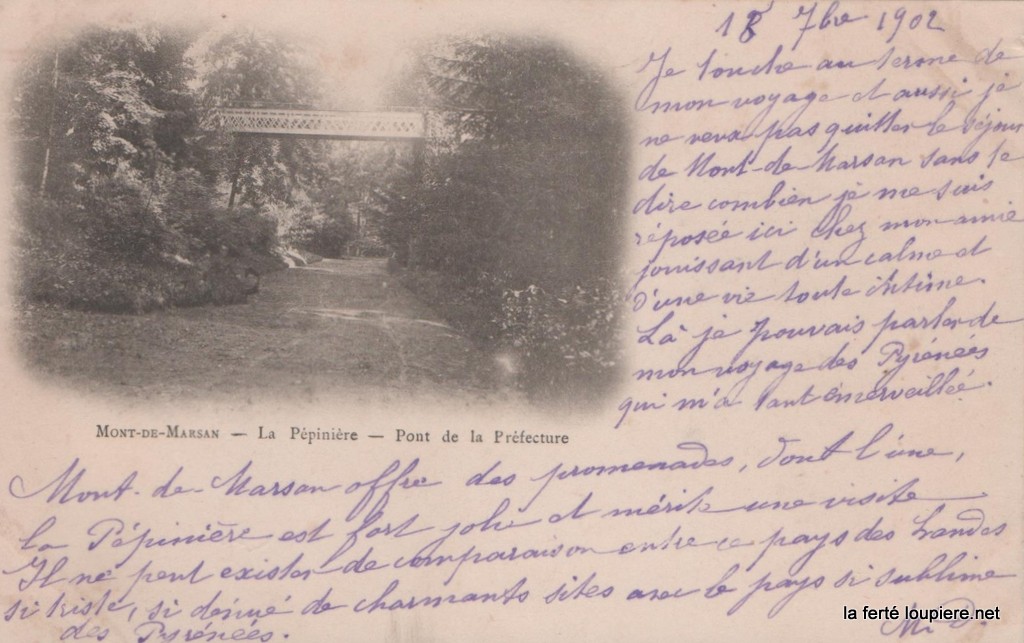 18 7bre 1902
Je touche au terme de
mon voyage et aussi je
ne veux pas quitter le séjour
de Mont-de-Marsan sans te
dire combien je me suis
réposée ici chez mon amie
jouissant d'un calme et
d'une vie toute intime.
Là je pouvais parler de
mon voyage des Pyrénées
qui m'a tant émerveillée.
MONT-DE-MARSAN — La Pépinière — Pont de la Préfecture
Mont-de-Marsan offre des promenades, dont l'une,
la Pépinière est fort jolie et mérite une visite
Il ne peut exister de comparaison entre ce pays des Landes
si triste, si dénué de charmants sites avec le pays si sublime
des Pyrénées.
M. D.
la ferté loupiere.net